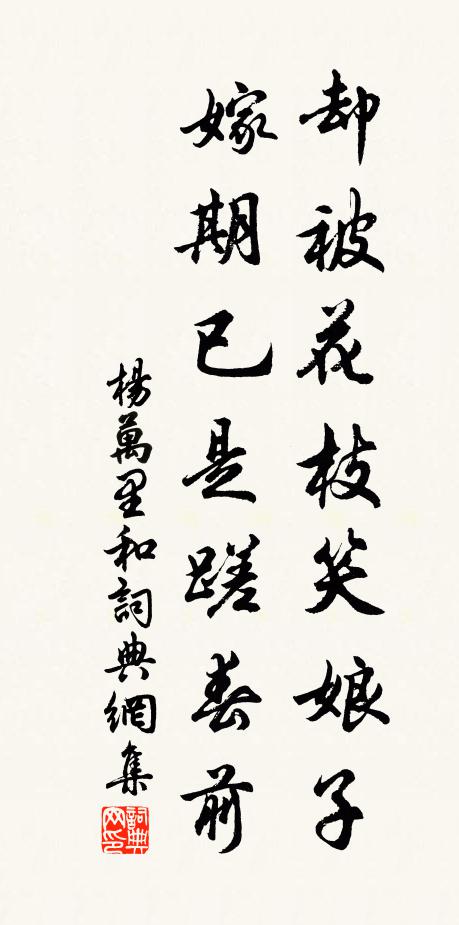 却被花枝笑娘子
嫁期已是蹉春前
楊萬里和詞典網集
詞典網印